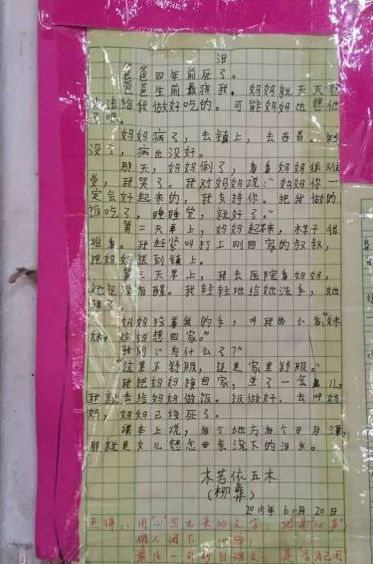 泪
爸爸四年前死了。
爸爸生前最疼我,妈妈就天天想
办法给我做好吃的。可能妈妈也想他
了吧。
妈妈病了,去镇上,去西昌。钱
没了,病也没好。
那天,妈妈倒了,看看妈妈很难
受,我哭了。我对妈妈说:“妈妈你一
定会好起来的,我支持你。把我做的
饭吃了,睡睡觉,就好了。”
第二天早上,妈妈起不来,样子很
难看。我赶紧叫打工刚回家的叔叔,
把妈妈送到镇上。
第三天早上,我去医院看妈妈,
她还没有醒。我轻轻地给她洗手,她
醒了。
妈妈拉着我的手,叫我的小名:“妹
妹,妈妈想回家。”
我问:“为什么了?”
“这里不舒服,还是家里舒服。”
我把妈妈接回家,坐了一会儿,
我就去给妈妈做饭。饭做好,去叫妈
妈,妈妈已经死了。
课本上说,有个地方有个日月潭,
那就是女儿想念母亲流下的泪水。
木苦依五木
(柳彝)
2015年6月20日
用心写出来的文字